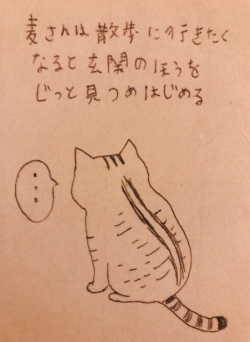 麦さんは散歩に行きたく
なると玄関のほうを
じっと見つめはじめる
...